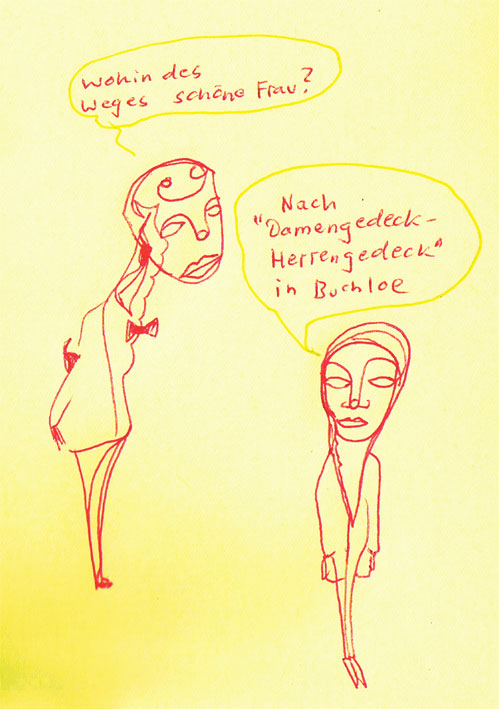 Wohin des
Weges schöne Frau?
Nach
"Damengedeck-
Herrengedeck"
in Buchloe